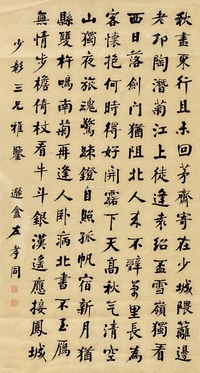 秋盡東行且未回茅齋寄在少城隈籬邊
老却陶潛菊江上徒逢袁紹盃雪嶺獨看
西日落劍門猶阻北人來不辭萬里長為
客懷抱何時得好開露下天高秋气清空
山獨夜旅魂驚疎鐙自照孤帆宿新月猶
縣雙杵鳴南菊再逢人卧病北書不至雁
無情步檐倚杖看牛斗銀漢遙應接鳳城
少彭三兄雅鑒
遯盦左孝同